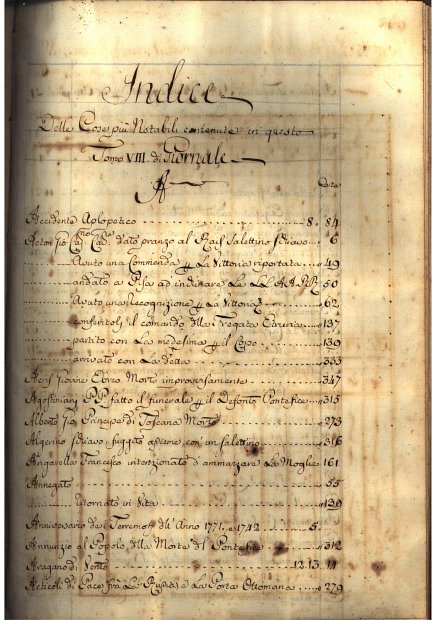 Indice
Delle Cose più Notabili contenute in questo
Tomo VIII. di Giornale
A
Carte
Accidente Aplopetico 8. 84
Acton Gio dato pranzo al Rais Salettino schiavo 6
Avuto una Commenda La Vittoria riportata 49
andato a Pisa ad inchinare Le LL. AA. RR. 50
Avuto una Recognizione La Vittoria 62
conferitoli il comando della Fregata Etruria 137
partito con La medesima il Corso 139
arrivato con La detta 333
Ebreo Morto improvvisamente 347
Agostiniani PP. fatto il funerale il Defonto Pontefice 315
Alberto Gio Principe di Toscana Morto 273
Algerino schiavo fuggito assieme con un salettino 316
Angarello Francesco intenzionato d'ammazzare La Moglie 161
Annegato 55
Ritornato in Vita 139
Anniversario de i Terremoti dell'Anno 1771, e 1742 5
Annunzio al Popolo della Morte del Pontefice 312
Uragano di Vento 12. 13. 14
Articoli di Pace frà La Russia e La Porta Ottomana 279